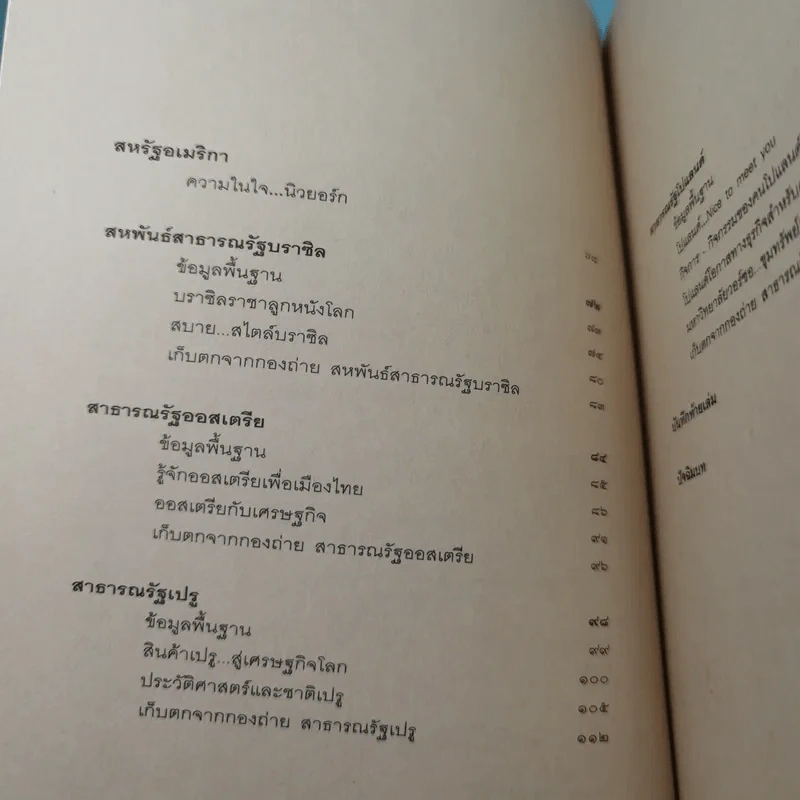 สหรัฐอเมริกา
ความในใจ...นิวยอร์ก
สหพันธ์สาธารณรัฐบราซิล ๗๒
ข้อมูลพื้นฐาน ๗๓
บราซิลราชาลูกหนังโลก ๗๔
สบาย...สไตล์บราซิล ๘๐
เก็บตกจากกองถ่าย สหพันธ์สาธารณรัฐบราซิล ๘๓
สาธารณรัฐออสเตรีย ๘๔
ข้อมูลพื้นฐาน ๘๕
รู้จักออสเตรียเพื่อเมืองไทย ๘๖
ออสเตรียกับเศรษฐกิจ ๙๑
เก็บตกจากกองถ่าย สาธารณรัฐออสเตรีย ๙๖
สาธารณรัฐเปรู ๙๘
ข้อมูลพื้นฐาน ๙๙
สินค้าเปรู...สู่เศรษฐกิจโลก ๑๐๐
ประวัติศาสตร์และชาติเปรู ๑๐๕
เก็บตกจากกองถ่าย สาธารณรัฐเปรู ๑๑๒
สาธารณรัฐโปแลนด์
ข้อมูลพื้นฐาน
โปแลนด์...Nice to meet you
กิจการ - กิจกรรมของคนโปแลนด์
โปแลนด์โอกาสทางธุรกิจสำหรับ
มหาวิทยาลัยวอร์ซอ...ขุมทรัพย์
เก็บตกจากกองถ่าย สาธารณรัฐ
บันทึกท้ายเล่ม
ปัจฉิมบท